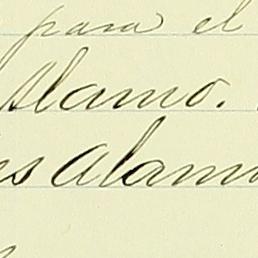 para el
Alamo.
Alam